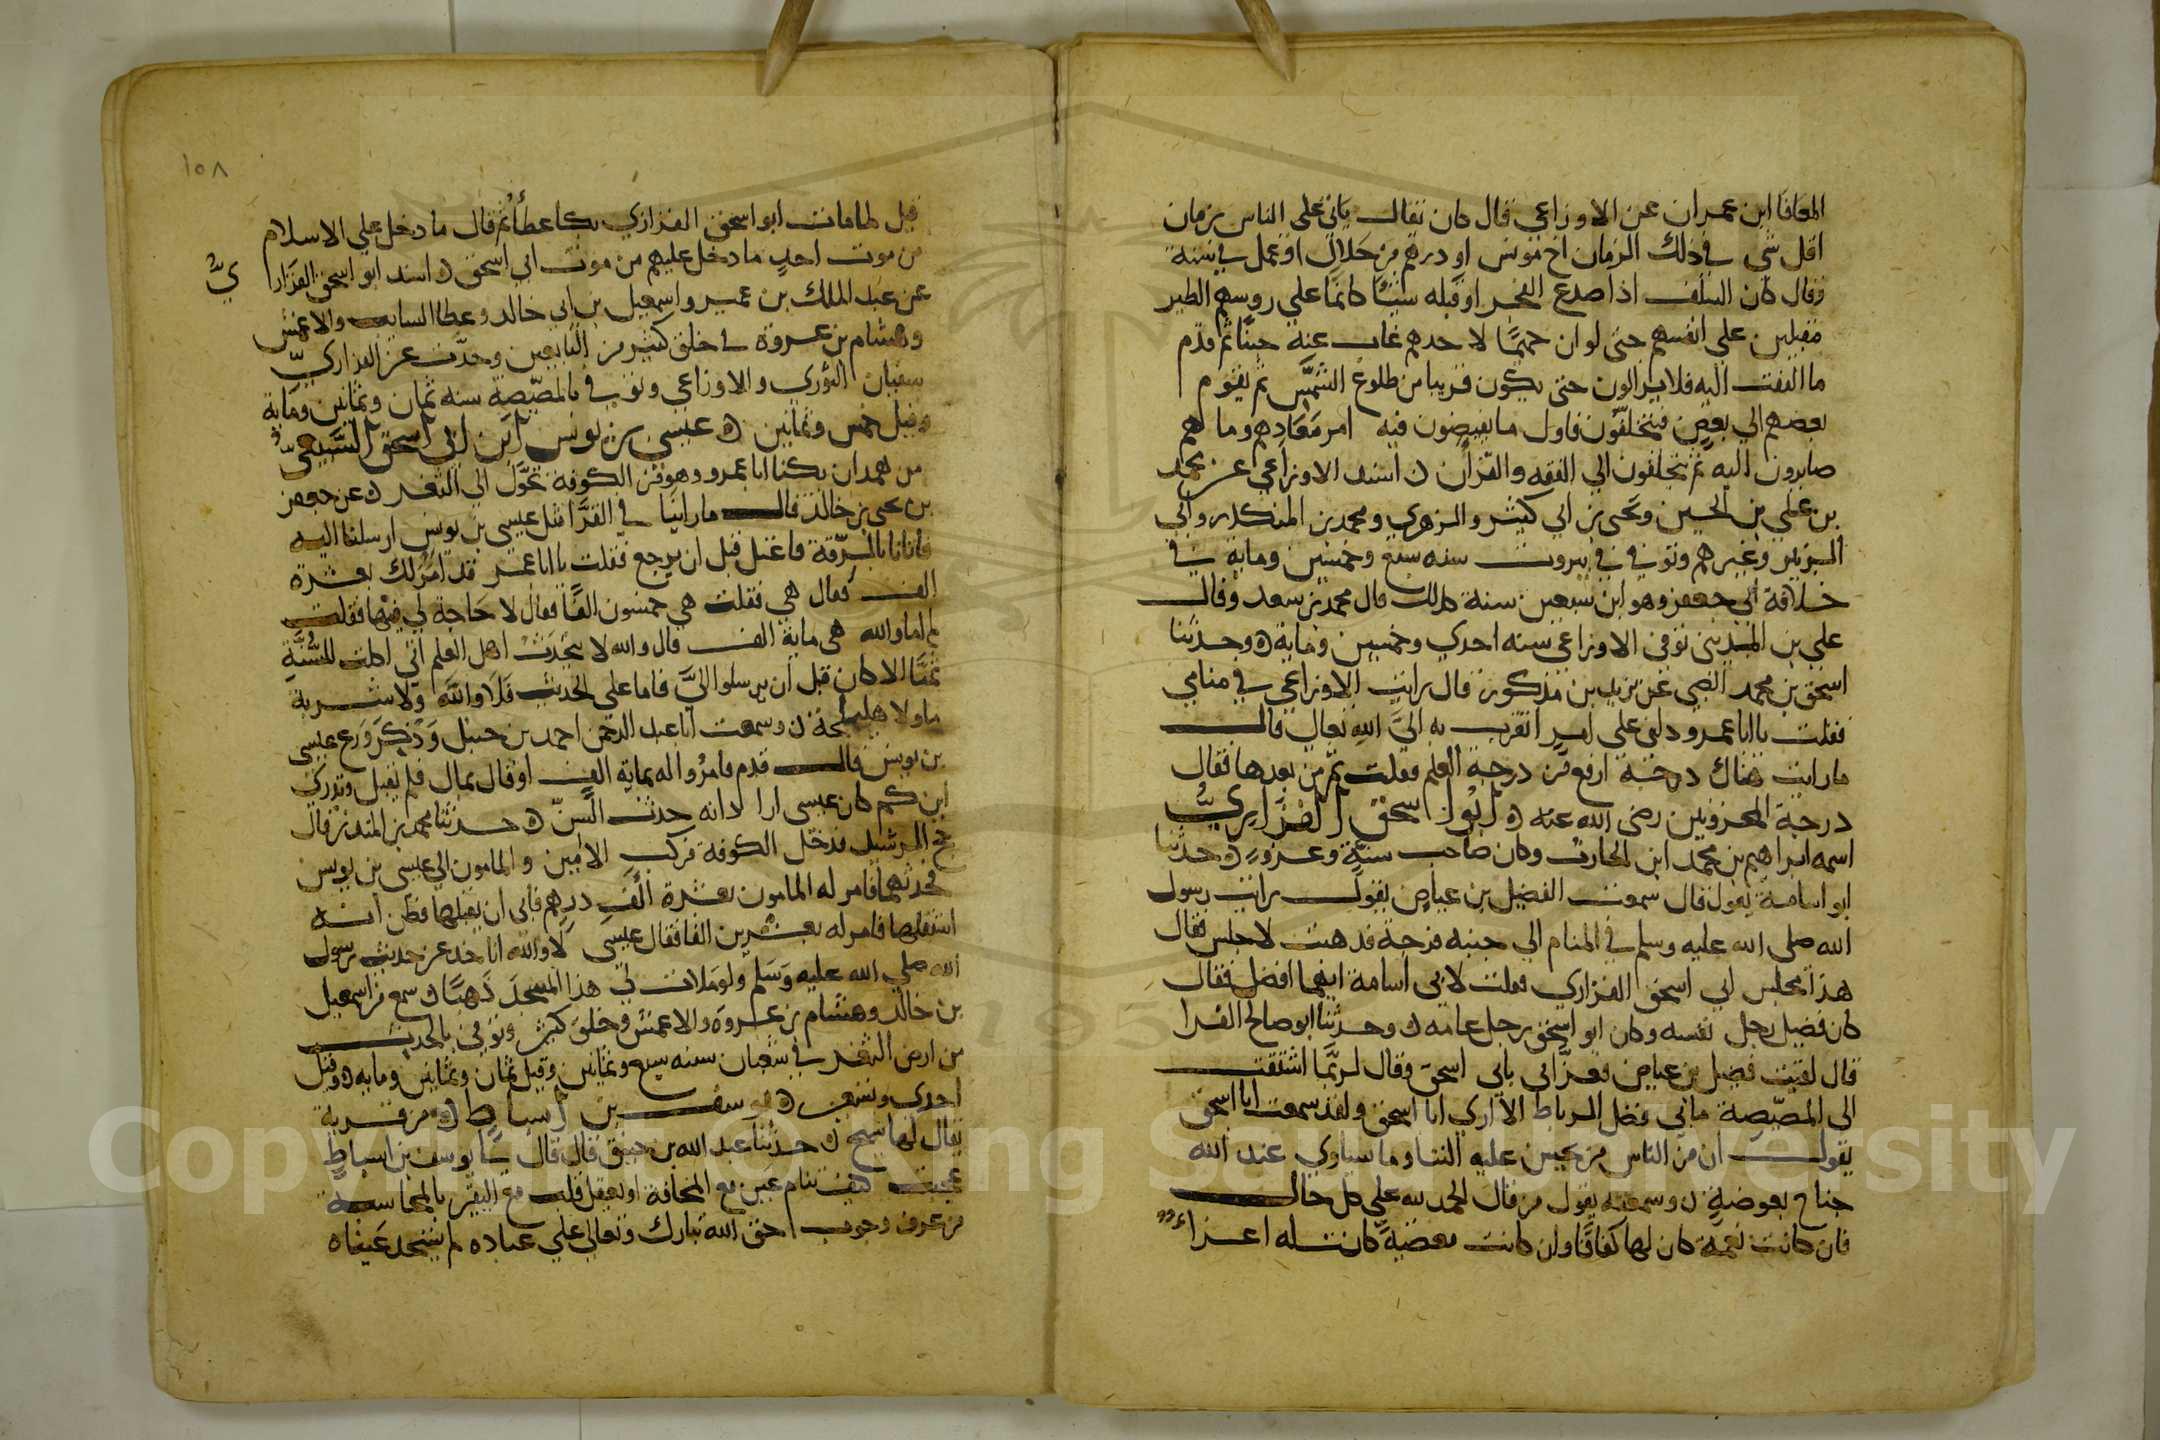 المعافا ابن عمران عن الاوزاعي قال كان يقال ياتي على الناس زمان
اقل شي في ذلك الزمان اخ مونس او درهم من حلال او عمل في سنة
وقال كان السلف اذا صدع الفجر او قبله شيئا كانما على روسهم الطير
مقبلين على انفسهم حتى لو ان حميما لاحدهم غاب عنه حينا ثم قدم
ما التفت اليه فلا يزالون حتى يكون قريبا من طلوع الشمس ثم يقوم
بعضهم الي بعض فيتحلقون فاول ما يفيضون فيه امر معادهم وما هم
صايرون اليه ثم يتحلقون الي الفقه والقران ه اسند الاوزاعي عن محمد
بن علي بن الحسين ويحيى بن ابي كثير والزهري ومحمد بن المنكدر وابي
الزبير وغيرهم وتوفي في بيروت سنه سبع وخمسين وماية في
خلافة ابي جعفر وهو ابن سبعين سنة كذلك قال محمد بن سعد وقال
علي بن المديني توفي الاوزاعي سنه احدي وخمسين وماية ه وحدثنا
اسحق بن محمد الضبي عن يزيد بن مذكور قال رايت الاوزاعي في منامي
فقلت يا ابا عمرو دلني علي امر اتقرب به الي الله تعالي قال
ما رايت هناك درجة ارفع من درجة العلم فقلت ثم من بعدها فقال
درجة المحزونين رضي الله عنه ه ابو اسحق الفزاريّ
اسمه ابراهيم بن محمد ابن الحارث وكان صاحب سنة وغزو ه حدثنا
ابو اسامة يقول قال سمعت الفضيل بن عياض يقول رايت رسول
الله صلى الله عليه وسلم في المنام الي جنبه فرجة فذهبت لاجلس فقال
هذا مجلس ابي اسحق الفزاري فقلت لابي اسامة ايهما افضل فقال
كان فضيل رجل نفسه وكان ابو اسحق رجل عامه ه وحدثنا ابو صالح الفرا
قال لقيت فضيل بن عياض فعزاني بابي اسحق وقال لربما اشتقت
الى المصيصة ما بي فضل الرباط الا اري ابا اسحق ولقد سمعت ابا اسحق
يقول ان من الناس من يحسن عليه الثنا وما يساوي عند الله
جناح بعوضة ه وسمعته يقول من قال الحمد لله على كل حال
فان كانت نعمة كان لها كفافا وان كانت معصية كان له اعزا
١٠٨
قيل لما مات ابو اسحق الفزاري بكا عطا ثم قال ما دخل علي الاسلام
من موت احد ما دخل عليهم من موت ابي اسحق ه اسند ابو اسحق الفزاريّ
عن عبد الملك بن عمير واسمعيل بن ابي خالد وعطا السايب والاعمش
وهشام بن عروة في خلق كثير من التابعين وحدث عن الفزاريّ
سفيان الثوري والاوزاعي وتوفي بالمصيصة سنه ثمان وثمانين وماية
وقيل خمس وثمانين ه عيسى بن يونس ابن ابي اسحق السبيعيّ
من همدان يكنا ابا عمرو وهو من الكوفة تحوّل الي الثغر ه عن جعفر
بن يحيى بن خالد قال ما راينا في القرا مثل عيسى بن يونس ارسلنا اليه
فاتانا بالرقة فاعتل قبل ان يرجع فقلت يا ابا عمر قد امر لك بعشرة
الف فقال هي فقلت هي خمسون الفا فقال لا حاجة لي فيها فقلت
لم اما والله هي ماية الف قال والله لا يتحدث اهل العلم اني اكلت للسنة
ثمنا الا كان قبل ان يرسلوا اليّ فاما على الحديث فلا والله ولا شربة
ما ولا هليلجة ه وسمعت ابا عبد الرحمن احمد بن حنبل وذكر ورع عيسى
بن يونس قال قدم فامروا له بماية الف او قال بمال فلم يقبل وتدري
ابن كم كان عيسى ارا لا انه حدث السن ه حدثنا محمد ابن المنذر قال
حج الرشيد فدخل الكوفة فركب الامين والمامون الي عيسى بن يونس
فحدثهما فامر له المامون بعشرة الف درهم فابى ان يقبلها فظن انه
استقلها فامر له بعشرين الفا فقال عيسى لا والله حديث رسول
الله صلى الله عليه وسلم ولو ملات لي هذا المسجد ذهبا ه سمع من اسمعيل
بن خالد وهشام بن عروة والاعمش وخلق كثير وتوفي بالحدث
من ارض الثغر في شعبان سنه سبع وثمانين وقيل ثمان وثمانين وماية ه وقيل
احدى وتسعين ه يوسف بن اسباط ه من قرية
يقال لها سيح ه حدثنا عبد الله بن خبيق قال قال لي يوسف بن اسباط
عجبت كيف تنام عين مع المخافة او يغفل قلب مع اليقين بالمحاسبة
من عرف وجوب حق الله تبارك وتعالى علي عباده لم تستحد عيناه
Copyright © King Saud University